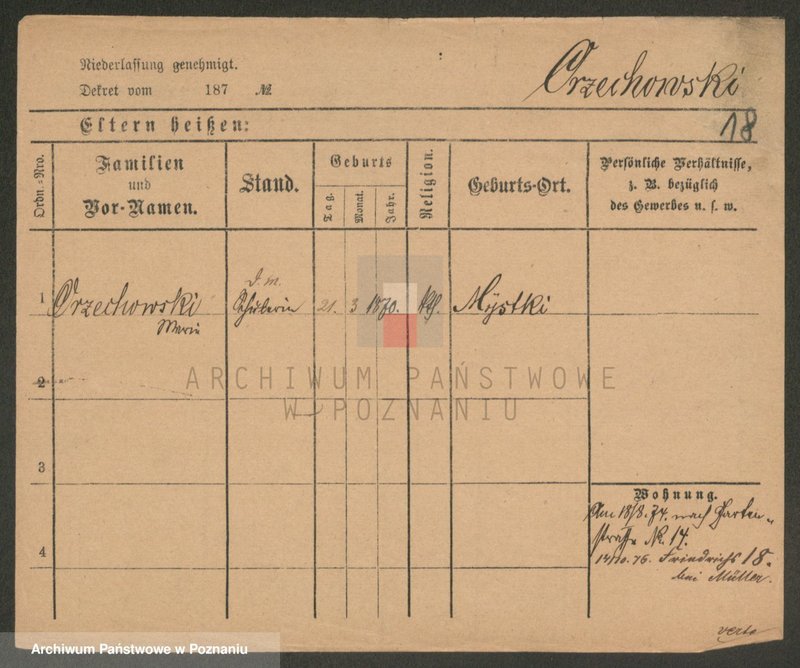 Niederlassung genehmigt.
Dekret vom 187 №
Orzechowski
18
Eltern heißen:
Ordn.-Nro.
Familien
und
Vor-Namen.
Stand.
Geburts
Tag.
Monat.
Jahr.
Religion.
Geburts-Ort.
Persönliche Verhältnisse,
z. B. bezüglich
des Gewerbes u. s. w.
1 Orzechowski 21. 3 1870. kth. Mystki
Marie
2
ARCHIWUM PAŃSTWOWE
W POZNANIU
3
Wohnung.
Am 18/8. 74. nach Garten-
straße No. 14.
4
76. Friedrichs 18.
bei Müller.
verte
Archiwum Państwowe w Poznaniu